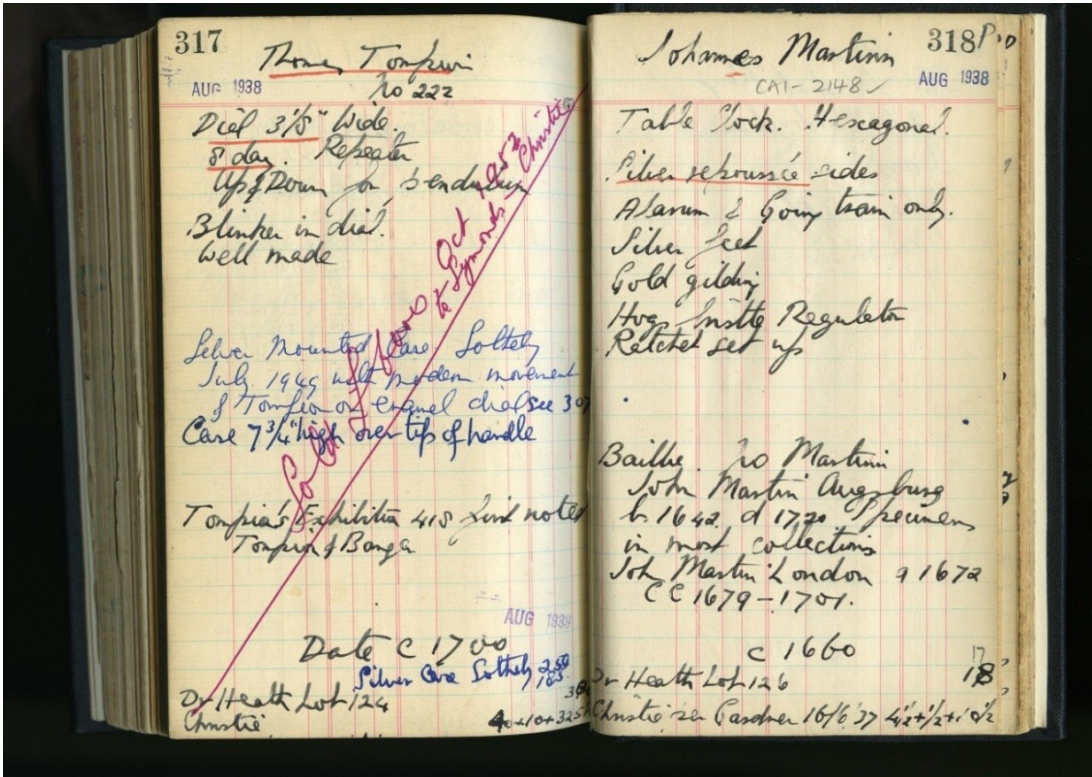 317
Thomas Tompion
AUG 1938
No 222
Dial 3 1/8" Wide.
8 day. Repeater
Up & Down for Pendulum
Blinker in dial.
Well made
Sold Oct 1952
to Symonds Christie
Silver Mounted Case Sotheby
July 1949 with modern movement
& Tompion on enamel dial see 307
Case 7 3/4" high over tip of handle
Tompion's Exhibition 418 first noted
Tompion & Banger
AUG 1938
Date c 1700
Silver Case Sotheby 250
185
Dr Heath Lot 124
Christie
40+10+325
318
Johannes Martinn
CAI-2148 ✓
AUG 1938
Table Clock. Hexagonal.
Silver repoussée sides
Alarum & Going train only.
Silver feet
Gold gilding
Hog bristle Regulator
Ratchet set up
Baillie. No Martinn
John Martin Augsburg
b 1642 d 1720 Specimens
in most collections
Joh Martin London a 1672
CC 1679-1701.
c 1660
Dr Heath Lot 126
18
Christie per Gardner 16/6/37